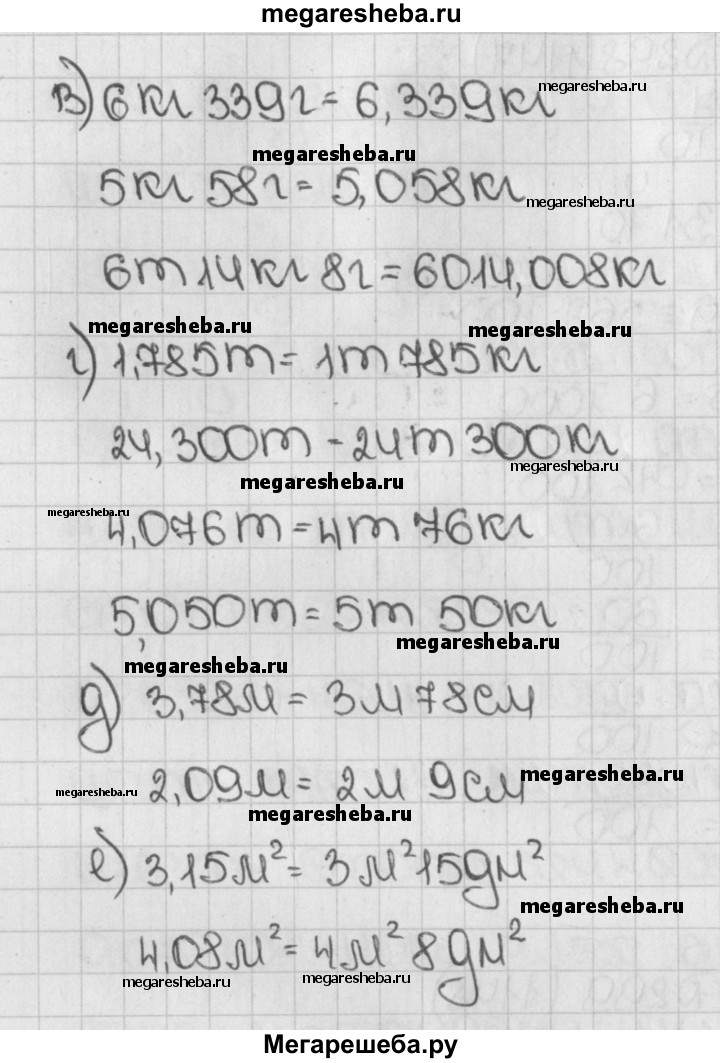 megaresheba.ru
в) 6 кг 339 г = 6,339 кг
megaresheba.ru
megaresheba.ru
5 кг 58 г = 5,058 кг
megaresheba.ru
6 т 14 кг 8 г = 6014,008 кг
megaresheba.ru
megaresheba.ru
г) 1,785 т = 1 т 785 кг
24,300 т - 24 т 300 кг
megaresheba.ru
megaresheba.ru
megaresheba.ru
4,076 т = 4 т 76 кг
5,050 т = 5 т 50 кг
megaresheba.ru
megaresheba.ru
д) 3,78 м = 3 м 78 см
megaresheba.ru
megaresheba.ru
2,09 м = 2 м 9 см
megaresheba.ru
е) 3,15 м² = 3 м² 15 дм²
megaresheba.ru
4,08 м² = 4 м² 8 дм²
megaresheba.ru
megaresheba.ru
Мегарешеба.ру